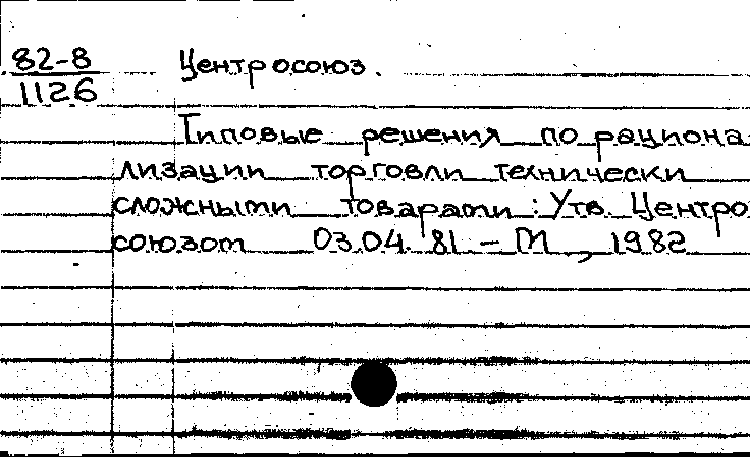 82-8
1126
Центросоюз.
Типовые решения по рациона
лизации торговли технически
сложными товарами: Утв. Центро
союзом 03.04.81. - М, 1982